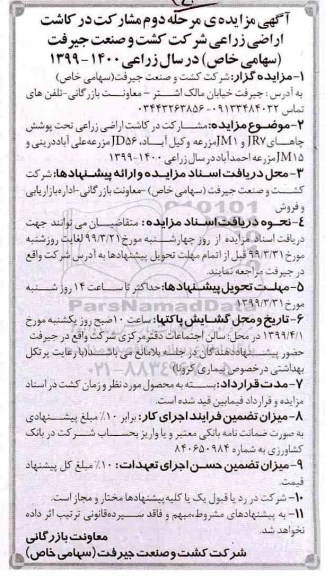 آگهی مزایده ی مرحله دوم مشارکت در کاشت
اراضی زراعی شرکت کشت و صنعت جیرفت
(سهامی خاص) در سال زراعی ۱۴۰۰-۱۳۹۹
۱-مزایده گزار: شرکت کشت و صنعت جیرفت(سهامی خاص)
به آدرس : جیرفت خیابان مالک اشتر - معاونت بازرگانی-تلفن های
تماس ۰۹۱۳۳۴۸۴۰۳۲-۰۳۴۴۳۲۶۳۸۵۶
۲-موضوع مزایده: مشارکت در کاشت اراضی زراعی تحت پوشش
چاههای JR۷ و JM۱ مزرعه وکیل آباد، JD۵۶ مزرعه علی آباد درینی و
JM۱۵ مزرعه احمدآباد در سال زراعی ۱۴۰۰-۱۳۹۹
۳-محل دریافت اسناد مزایده و ارائه پیشنهادها: شرکت
کشت و صنعت جیرفت (سهامی خاص) -معاونت بازرگانی-اداره بازاریابی
و فروش
۴-نحوه دریافت اسناد مزایده : متقاضیان می توانند جهت
دریافت اسناد مزایده از روز چهارشنبه مورخ ۹۹/۳/۲۱ لغایت روز شنبه
مورخ ۹۹/۳/۳۱ قبل از اتمام مهلت تحویل پیشنهادها به آدرس شرکت واقع
در جیرفت مراجعه نمایند.
۵-مهلت تحویل پیشنهادها: حداکثر تا ساعت ۱۴ روز شنبه
مورخ ۱۳۹۹/۳/۳۱
۶-تاریخ و محل گشایش پاکتها: ساعت ۱۰ صبح روز یکشنبه مورخ
۱۳۹۹/۴/۱ در محل: سالن اجتماعات دفتر مرکزی شرکت واقع در جیرفت
حضور پیشنهاددهندگان در جلسه بلامانع می باشد.(با رعایت پرتکل
بهداشتی در خصوص بیماری کرونا)
۷-مدت قرارداد: بسته به محصول مورد نظر و زمان کشت در اسناد
مزایده و قرارداد فیمابین قید شده است.
۸-میزان تضمین فرایند اجرای کار: برابر ۱۰٪ مبلغ پیشنهادی
به صورت ضمانت نامه بانکی معتبر و یا واریز بحساب شرکت در بانک
کشاورزی به شماره ۸۴۰۶۵۰۹۸۴
۹-میزان تضمین حسن اجرای تعهدات: ۱۰٪ مبلغ کل پیشنهاد
قیمت.
۱۰- شرکت در رد یا قبول یک یا کلیه پیشنهادها مختار و مجاز است.
۱۱- به پیشنهادهای مشروط، مبهم و فاقد سپرده قانونی ترتیب اثر داده
نخواهد شد.
معاونت بازرگانی
شرکت کشت و صنعت جیرفت (سهامی خاص)